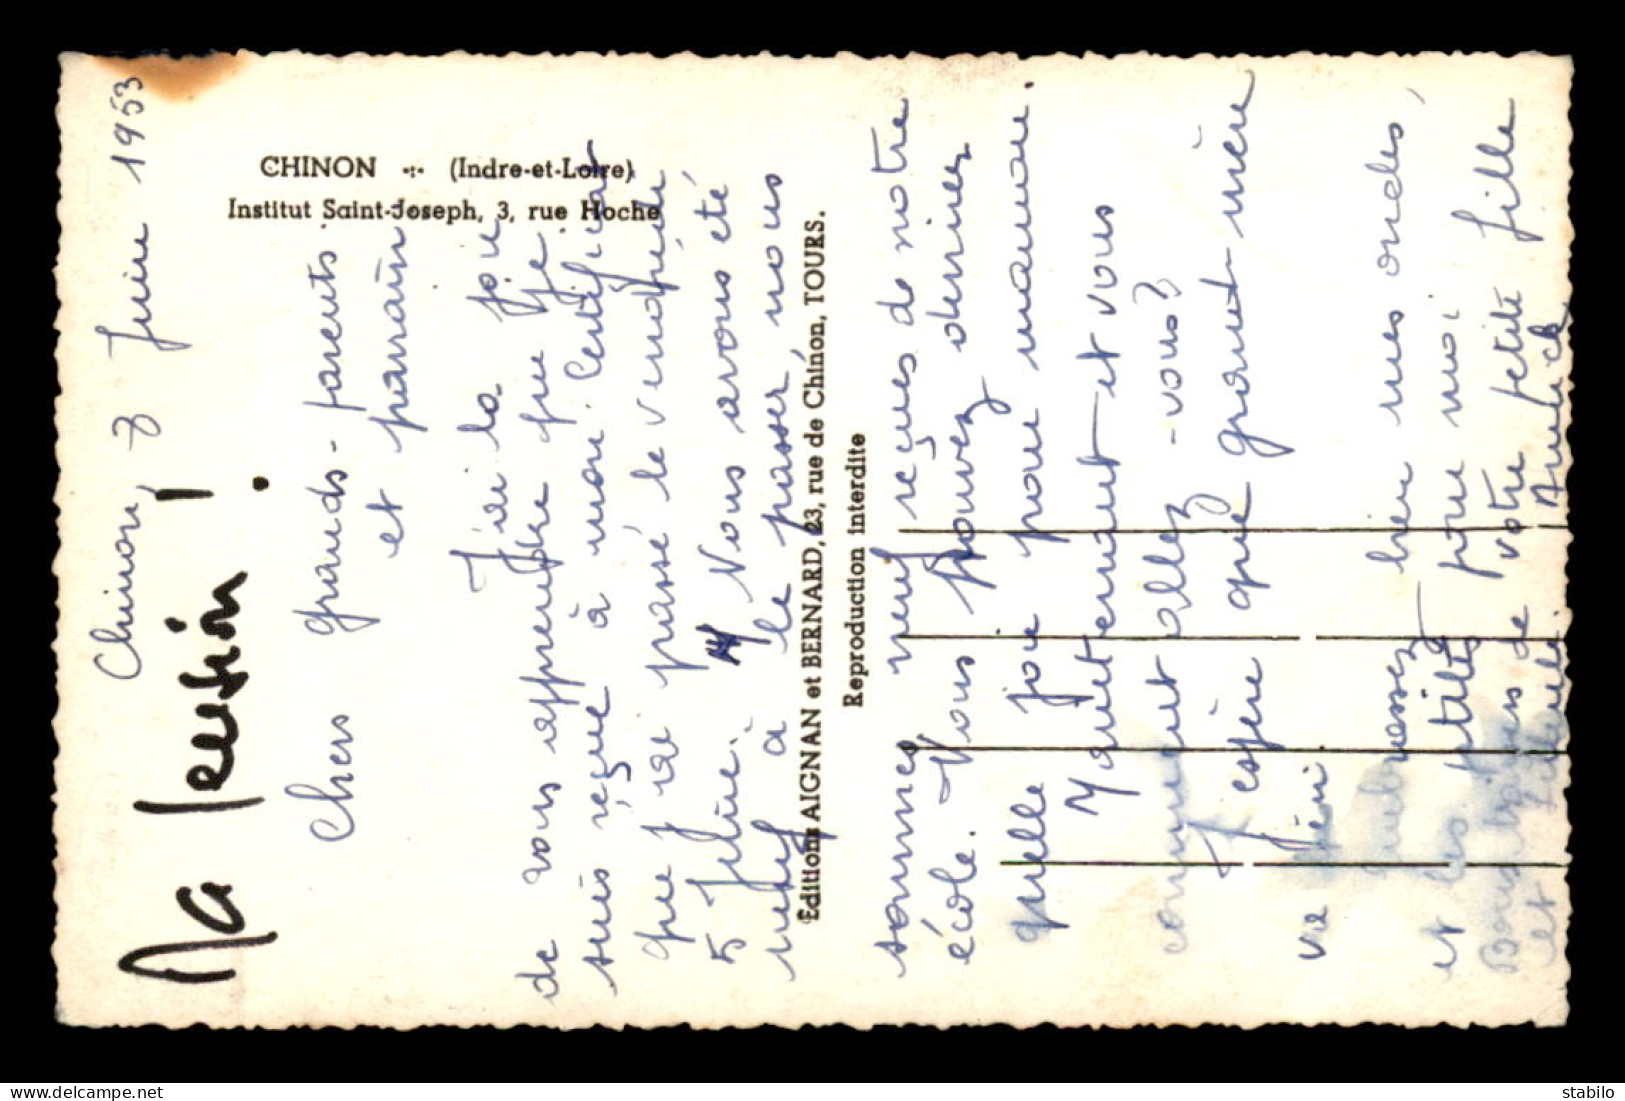 CHINON -:- (Indre-et-Loire)
Institut Saint-Joseph, 3, rue Hoche
Éditions AIGNAN et BERNARD, 23, rue de Chinon, TOURS.
Reproduction interdite
Chinon, 7 Juin 1953
Ma
!
Chers grands-parents
et parrain
J'ai la joie
de vous apprendre que je
suis reçue à mon Certificat
que j'ai passé le vendredi
5 Juin. Nous avons été
neuf à le passer, nous
sommes neuf reçues de notre
école. Vous pouvez deviner
quelle joie pour maman.
Maintenant et vous
comment allez-vous?
J'espère que grand-mère
va
bien mes oncles,
et les pour moi.
de votre petite fille
et
delcampe.net
stabilo